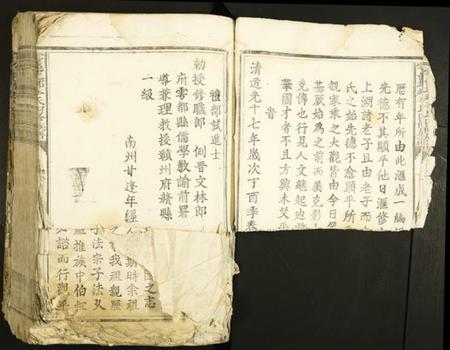 歷有年所由此滙成一編
先德不其顯乎他日滙修
上溯諸老子且由老子而
氏之始先德不愈顯乎所
觀家乘之大觀皆由今日
基厥始為之前而美克彰
克傳也行見人文蔚起
華國才者不且方興未艾乎
旹
清道光十七年歲次丁酉季春
禮部試進士
勅授修職郎 例晉文林郎
府雩都縣儒學教諭前署
導兼理教授贛州府贛縣
一級
南州甘逢年經
之志
斯時余祖
我祖親
子法宗子法乂
族中伯
諮而行